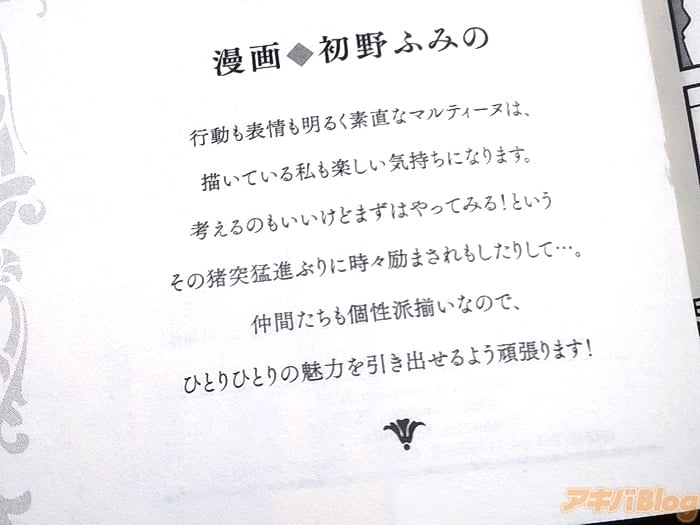 漫画◆初野ふみの
行動も表情も明るく素直なマルティーヌは、
描いている私も楽しい気持ちになります。
考えるのもいいけどまずはやってみる！という
その猪突猛進ぶりに時々励まされもしたりして…。
仲間たちも個性派揃いなので、
ひとりひとりの魅力を引き出せるよう頑張ります！
アキバBlog